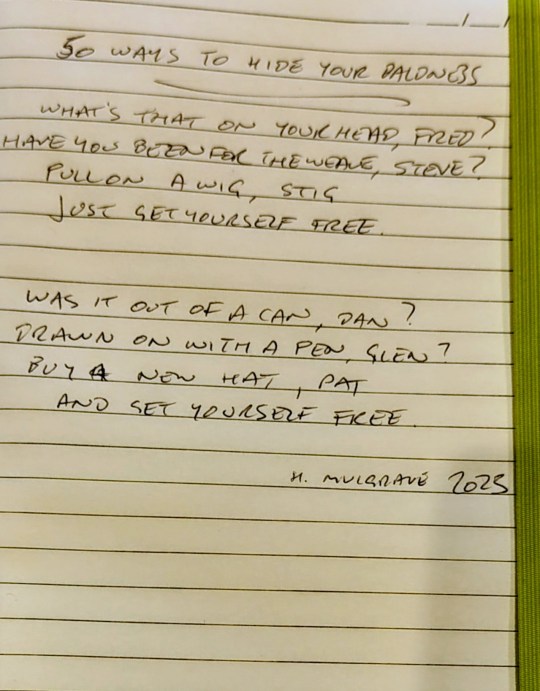 __/__/
50 WAYS TO HIDE YOUR BALDNESS
WHAT'S THAT ON YOUR HEAD, FRED?
HAVE YOU BEEN FOR THE WEAVE, STEVE?
PULL ON A WIG, STIG
JUST GET YOURSELF FREE.
WAS IT OUT OF A CAN, DAN?
DRAWN ON WITH A PEN, GLEN?
BUY A NEW HAT, PAT
AND GET YOURSELF FREE.
H. MULGRAVE 2023